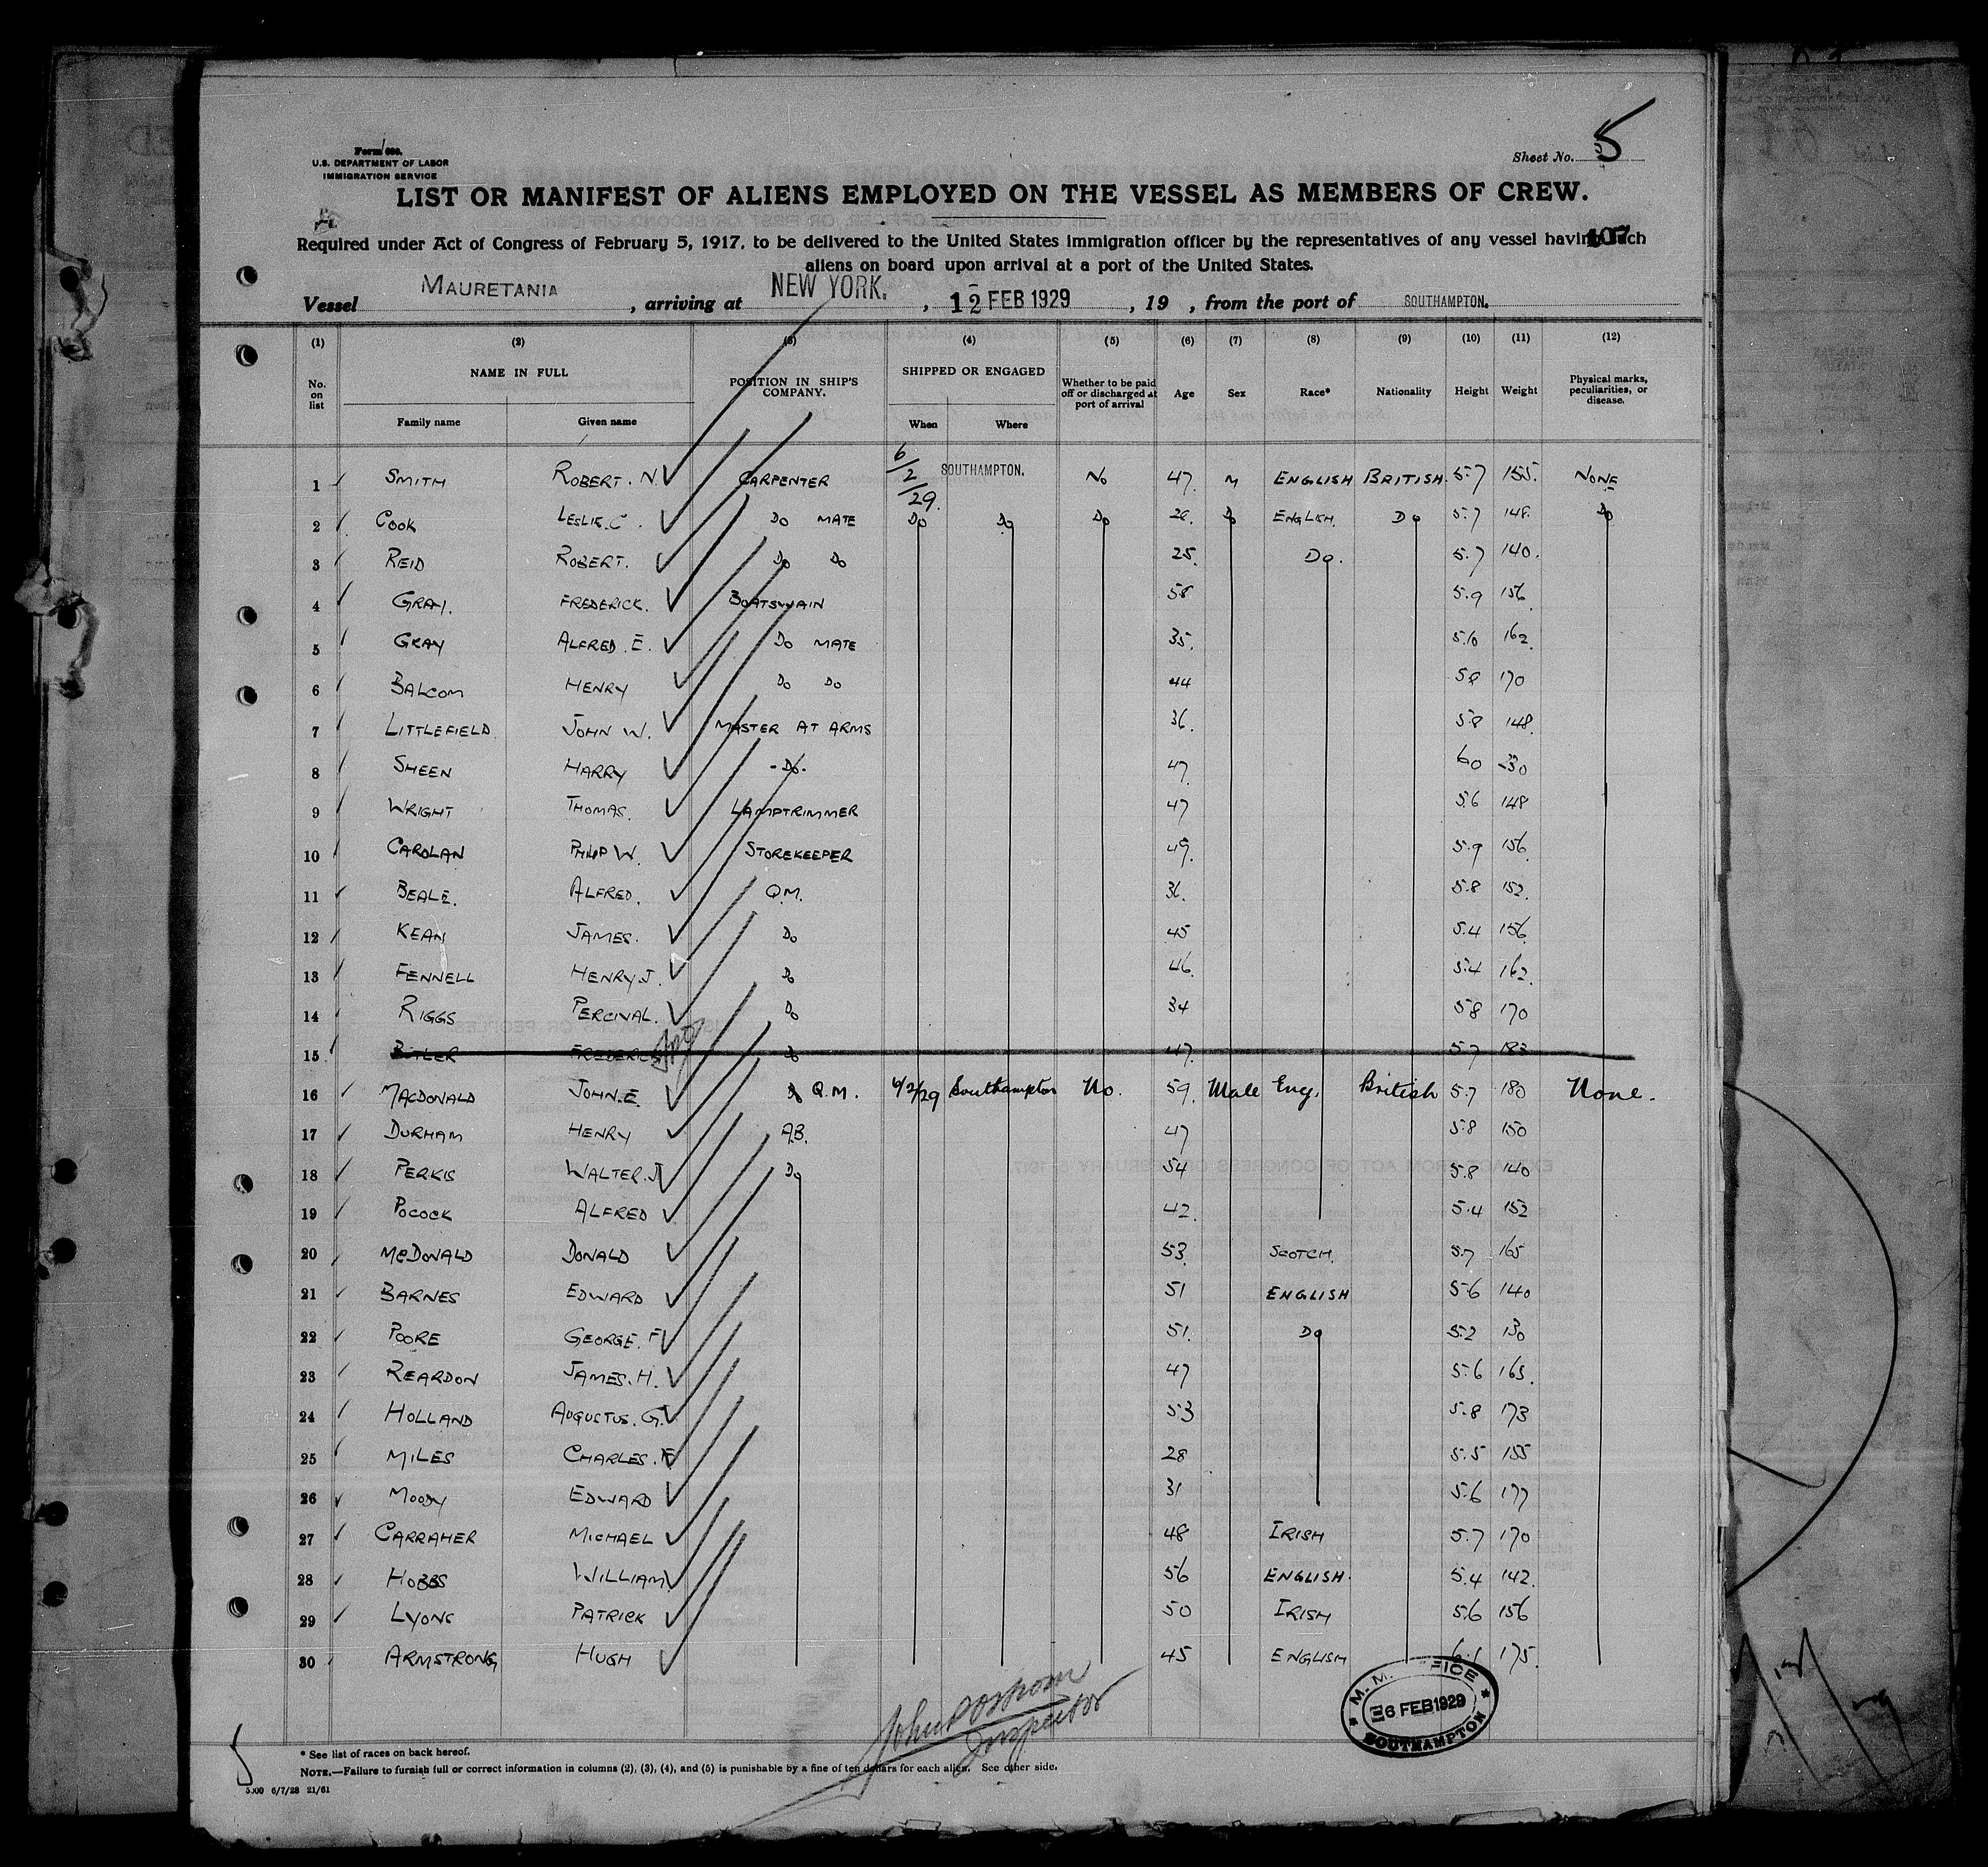 Form 680.
U.S. DEPARTMENT OF LABOR
IMMIGRATION SERVICE
Sheet No. 5
LIST OR MANIFEST OF ALIENS EMPLOYED ON THE VESSEL AS MEMBERS OF CREW.
Required under Act of Congress of February 5, 1917, to be delivered to the United States immigration officer by the representatives of any vessel having such
107
aliens on board upon arrival at a port of the United States.
Vessel MAURETANIA, arriving at NEW YORK., 12 FEB 1929, 19 , from the port of SOUTHAMPTON.
(1) (2) (3) (4) (5) (6) (7) (8) (9) (10) (11) (12)
No. on list NAME IN FULL Family name Given name POSITION IN SHIP'S COMPANY. SHIPPED OR ENGAGED When Where Whether to be paid off or discharged at port of arrival Age Sex Race* Nationality Height Weight Physical marks, peculiarities, or disease.
1 SMITH ROBERT. N CARPENTER 6/2/29. SOUTHAMPTON. No 47. M ENGLISH BRITISH. 5-7 155. NONE
2 COOK LESLIE.C. Do MATE Do Do Do Do ENGLISH. Do 5-7 148. Do
3 REID ROBERT. Do Do 25. Do. 5.7 140.
4 GRAY. FREDERICK. BOATSWAIN 58 5.9 156
5 GRAY ALFRED. E. Do MATE 35. 5.10 162.
6 BALCOM HENRY Do Do 44 5.8 170
7 LITTLEFIELD JOHN W. MASTER AT ARMS 36. 5.8 148.
8 SHEEN HARRY - Do. 47. 6.0
9 WRIGHT THOMAS. LAMPTRIMMER 47 5.6 148
10 CAROLAN PHILIP W. STOREKEEPER 49. 5.9 156.
11 BEALE. ALFRED. Q.M. 36. 5.8 152.
12 KEAN JAMES. Do 45 5.4 156
13 FENNELL HENRY J. Do 46. 5.4 162.
14 RIGGS PERCIVAL. Do 34 5.8 170
15 BUTLER FREDERICK Do 47. 5.7 183
16 MACDONALD JOHN.E. Do Q.M. 6/2/29 Southampton No. 59. Male Eng. British 5.7 180 None.
17 DURHAM HENRY A.B. 47 5.8 150
18 PERKIS WALTER.J Do 54 5.8 140
19 POCOCK ALFRED 42. 5.4 152
20 McDONALD DONALD 53. SCOTCH. 5.7 165
21 BARNES EDWARD 51 ENGLISH 5-6 140
22 POORE GEORGE. F 51. Do 5.2 130
23 REARDON JAMES.H. 47 5.6 165.
24 HOLLAND AUGUSTUS.G. 53 5.8 173
25 MILES CHARLES. F 28 5.5 155
26 MOODY EDWARD 31 5.6 177
27 CARRAHER MICHAEL 48 IRISH 5.7 170
28 HOBBS WILLIAM 56 ENGLISH. 5.4 142.
29 LYONS PATRICK 50 IRISH 5.6 156
30 ARMSTRONG HUGH 45 ENGLISH 6.1 175.
Inspector
M. M. OFFICE
6 FEB 1929
SOUTHAMPTON
* See list of races on back hereof.
NOTE.—Failure to furnish full or correct information in columns (2), (3), (4), and (5) is punishable by a fine of ten dollars for each alien. See other side.
5000 6/7/28 21/61